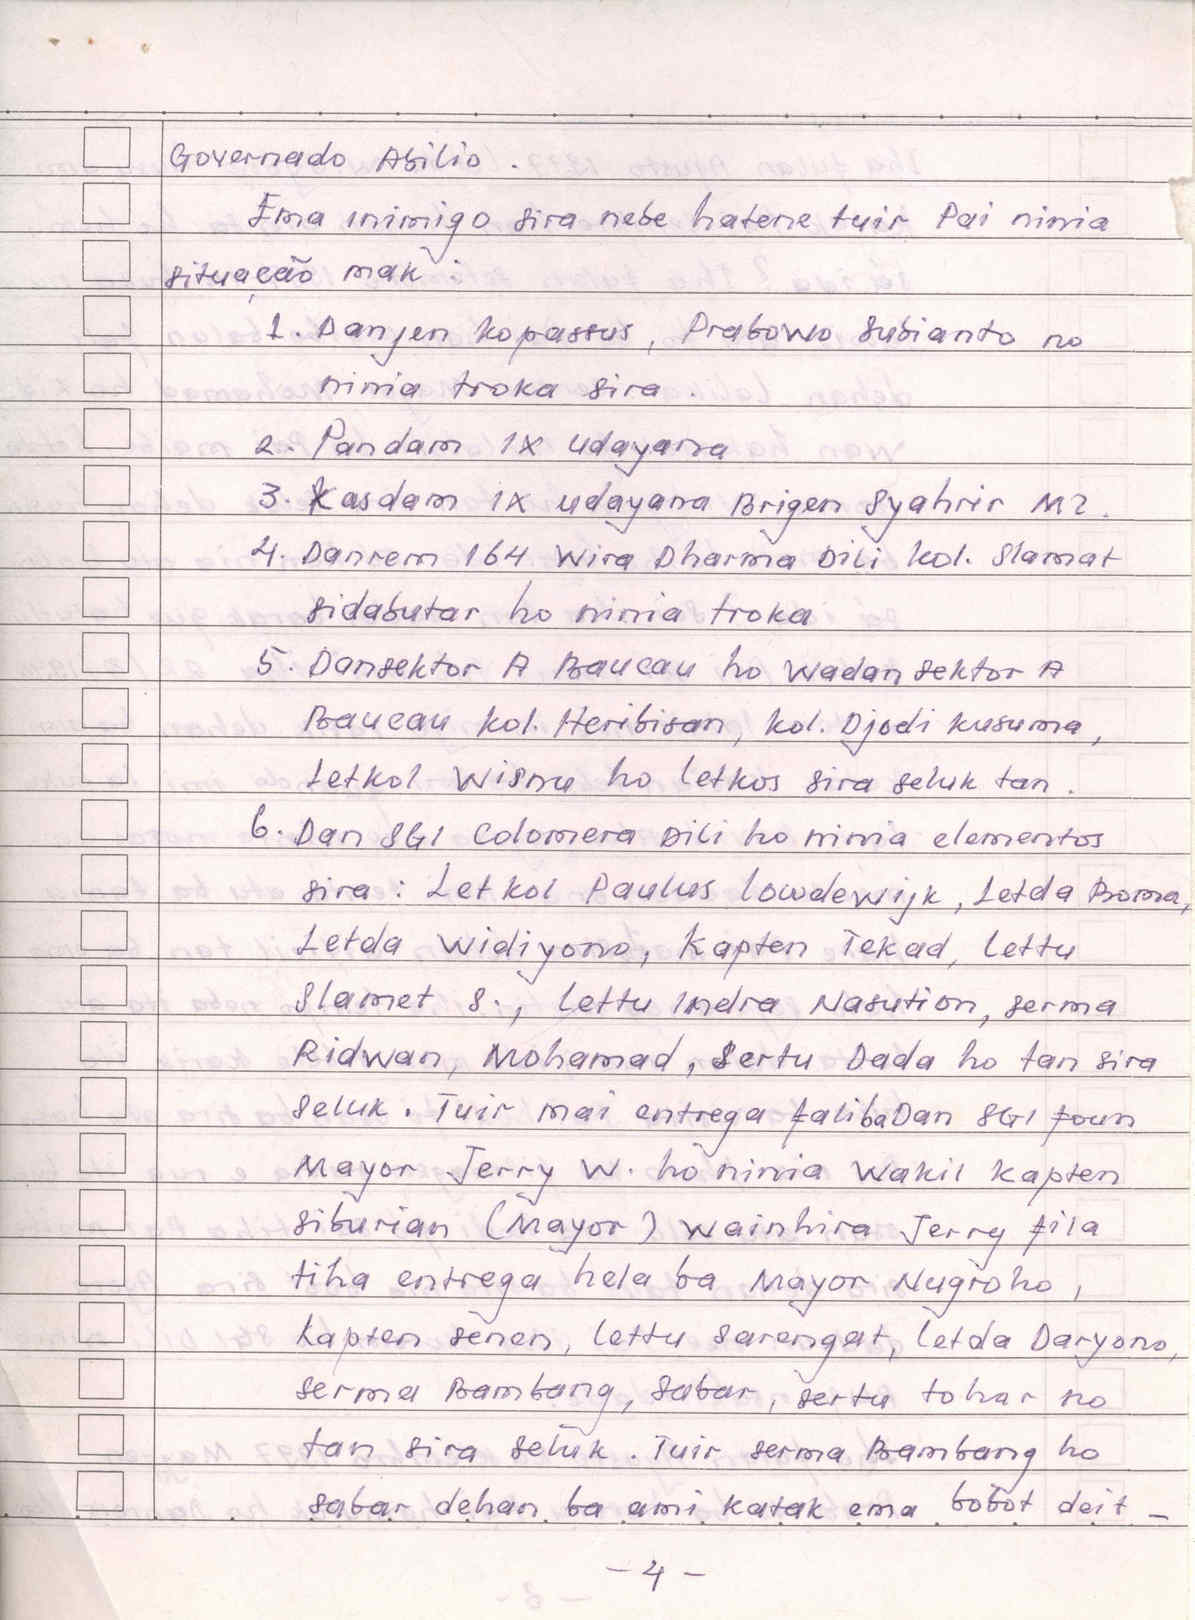 Governado Abilio.
Ema inimigo sira nebe hatene tuir Pai ninia
situação mak :
1. Danjen Kopassus, Prabowo Subianto no
ninia troka sira.
2. Pandam IX Udayana
3. Kasdam IX Udayana Brigen Syahrir M?.
4. Danrem 164 Wira Dharma Dili Kol. Slamat
Sidabutar ho ninia troka
5. Dansektor A Baucau ho Wadan sektor A
Baucau Kol. Heribisan, Kol. Djodi Kusuma,
Letkol Wisnu ho letkos sira seluk tan.
6. Dan SGI Colomera Dili ho ninia elementos
sira : Letkol Paulus Lowdewijk, Letda Boma,
Letda Widiyono, Kapten Tekad, Lettu
Slamet S., Lettu Indra Nasution, Serma
Ridwan, Mohamad, Sertu Dada ho tan sira
seluk. Tuir mai entrega fali ba Dan SGI foun
Mayor Jerry W. ho ninia Wakil Kapten
Siburian (Mayor) Wainhira Jerry fila
tiha entrega hela ba Mayor Nugroho,
Kapten Senen, Lettu Sarengat, Letda Daryono,
Serma Bambang, Sabar, Sertu tohar no
tan sira seluk. Tuir Serma Bambang ho
Sabar dehan ba ami katak ema bobot deit -
- 4 -